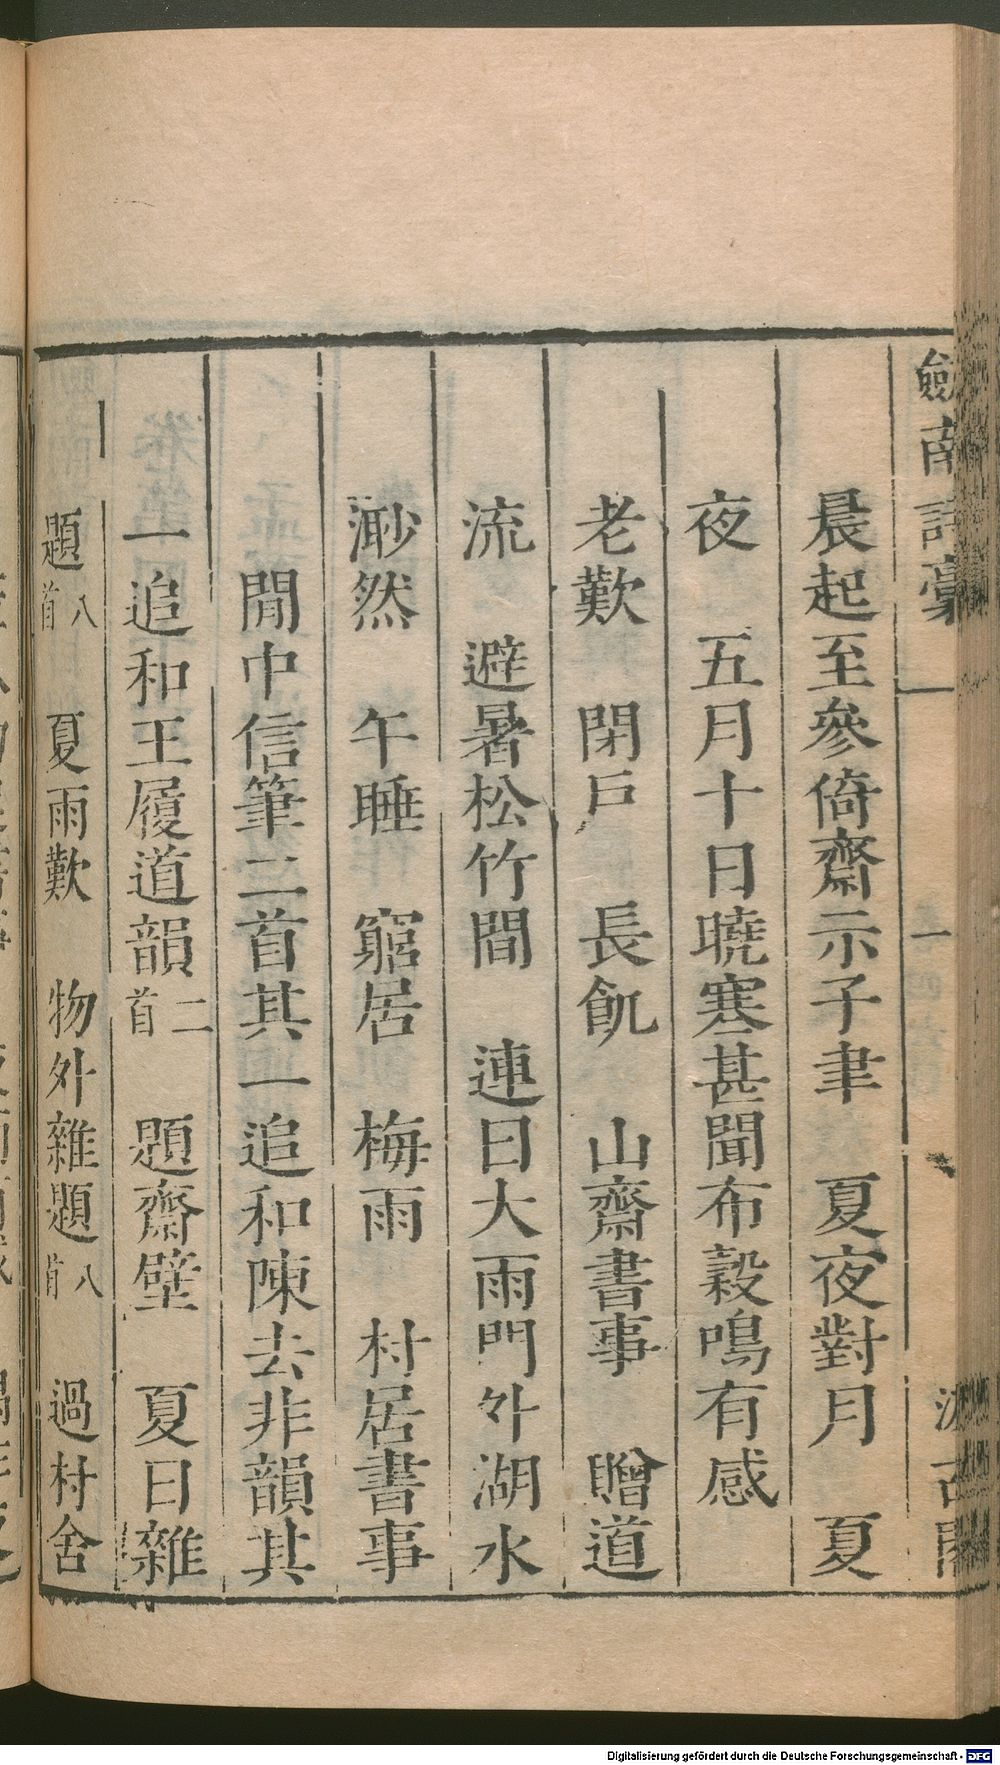 劍南詩藁
一
汲古閣
晨起至參倚齋示子聿　夏夜對月　夏
夜　五月十日曉寒甚聞布穀鳴有感
老歎　閉戶　長飢　山齋書事　贈道
流　避暑松竹間　連日大雨門外湖水
渺然　午睡　窮居　梅雨　村居書事
閒中信筆二首其一追和陳去非韻其
一追和王履道韻二首　題齋壁　夏日雜
題八首　夏雨歎　物外雜題八首　過村舍
Digitalisierung gefördert durch die Deutsche Forschungsgemeinschaft - DFG